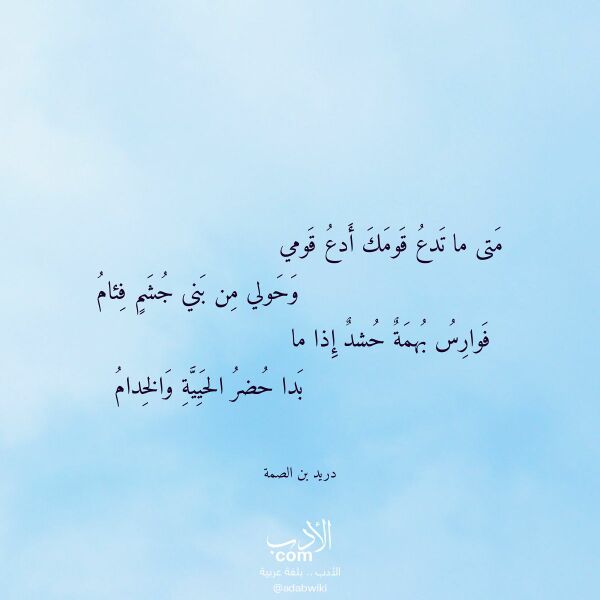 مَتى ما تَدعُ قَومَكَ أَدعُ قَومي
وَحَولي مِن بَني جُشَمٍ فِئامُ
فَوارِسُ بُهمَةٌ حُشدٌ إِذا ما
بَدا حُضرُ الحَيِيَّةِ وَالخِدامُ
دريد بن الصمة
الأدب
com
الأدب .. بلغة عربية
@adabwiki